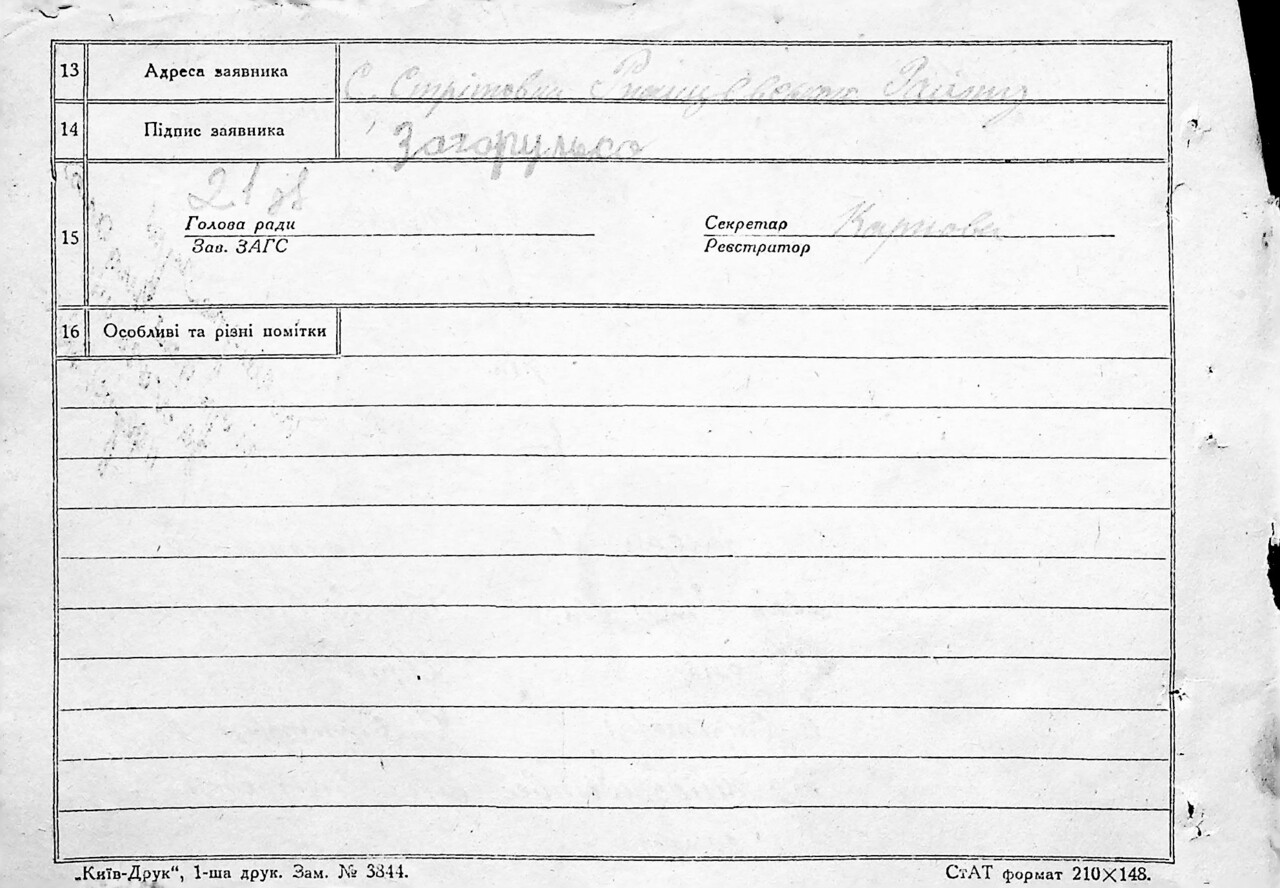 13 Адреса заявника С. Стрітовка Ржищевського Району
14 Підпис заявника Загорулько
21
15 Голова ради Секретар Карпова
Зав. ЗАГС Реєстратор
16 Особливі та різні помітки
„Київ-Друк“, 1-ша друк. Зам. № 3844. СтАТ формат 210×148.